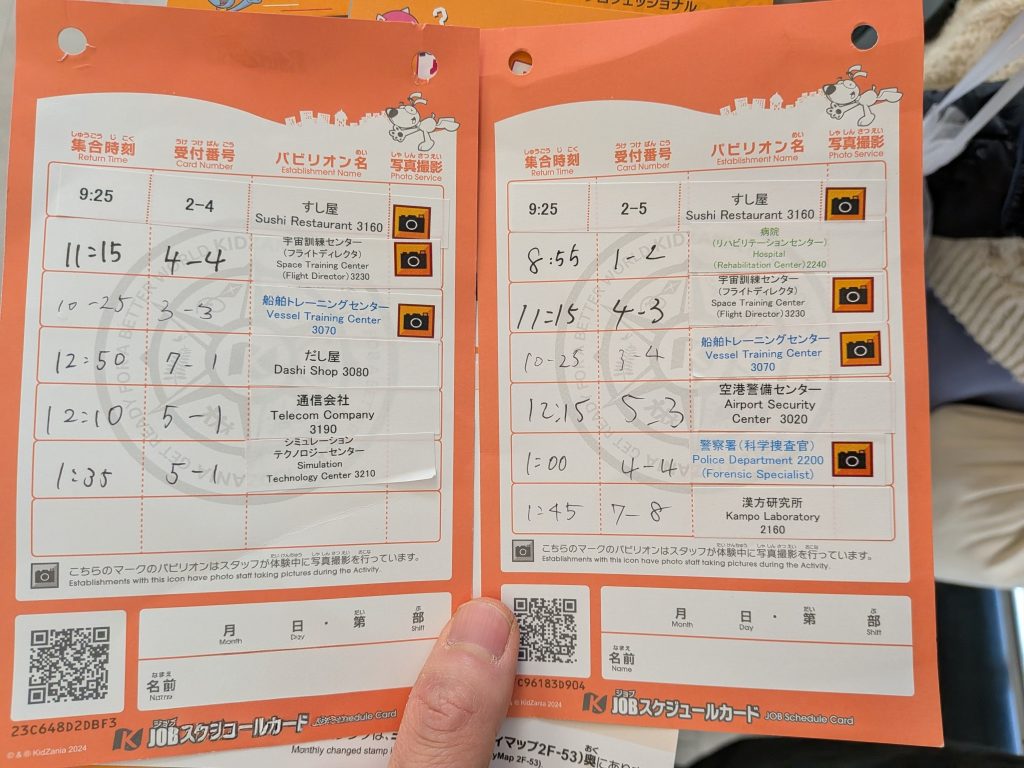 プロフェッショナル
?
しゅうごう じこく
集合時刻
Return Time
うけつけ ばんごう
受付番号
Card Number
パビリオン名
めい
Establishment Name
しゃしんさつえい
写真撮影
Photo Service
9:25
2-4
すし屋
Sushi Restaurant 3160
11:15
4-4
宇宙訓練センター
(フライトディレクタ)
Space Training Center
(Flight Director) 3230
10-25
3-3
船舶トレーニングセンター
Vessel Training Center
3070
12:50
7-1
だし屋
Dashi Shop 3080
12:10
5-1
通信会社
Telecom Company
3190
1:35
5-1
シミュレーション
テクノロジーセンター
Simulation
Technology Center 3210
たいけんちゅう しゃしんさつえい おこな
こちらのマークのパビリオンはスタッフが体験中に写真撮影を行っています。
Establishments with this icon have photo staff taking pictures during the Activity.
月
Month
日
Day
・
だい
第
ぶ
部
Shift
なまえ
名前
Name
23C648D2DBF3
© & ® KidZania 2024
ジョブ
JOBスケジュールカード
JOB Schedule Card
しゅうごう じこく
集合時刻
Return Time
うけつけ ばんごう
受付番号
Card Number
パビリオン名
めい
Establishment Name
しゃしんさつえい
写真撮影
Photo Service
9:25
2-5
すし屋
Sushi Restaurant 3160
8:55
1-2
病院
(リハビリテーションセンター)
Hospital
(Rehabilitation Center) 2240
11:15
4-3
宇宙訓練センター
(フライトディレクタ)
Space Training Center
(Flight Director) 3230
10-25
3-4
船舶トレーニングセンター
Vessel Training Center
3070
12:15
5-3
空港警備センター
Airport Security
Center 3020
1:00
4-4
警察署(科学捜査官)
Police Department 2200
(Forensic Specialist)
1:45
7-8
漢方研究所
Kampo Laboratory
2160
たいけんちゅう しゃしんさつえい おこな
こちらのマークのパビリオンはスタッフが体験中に写真撮影を行っています。
Establishments with this icon have photo staff taking pictures during the Activity.
月
Month
日
Day
・
だい
第
ぶ
部
Shift
なまえ
名前
Name
C96183D904
© & ® KidZania 2024
ジョブ
JOBスケジュールカード
JOB Schedule Card
Monthly changed stamp i
ィマップ2F-53)奥にあり
おく
yMap 2F-53).